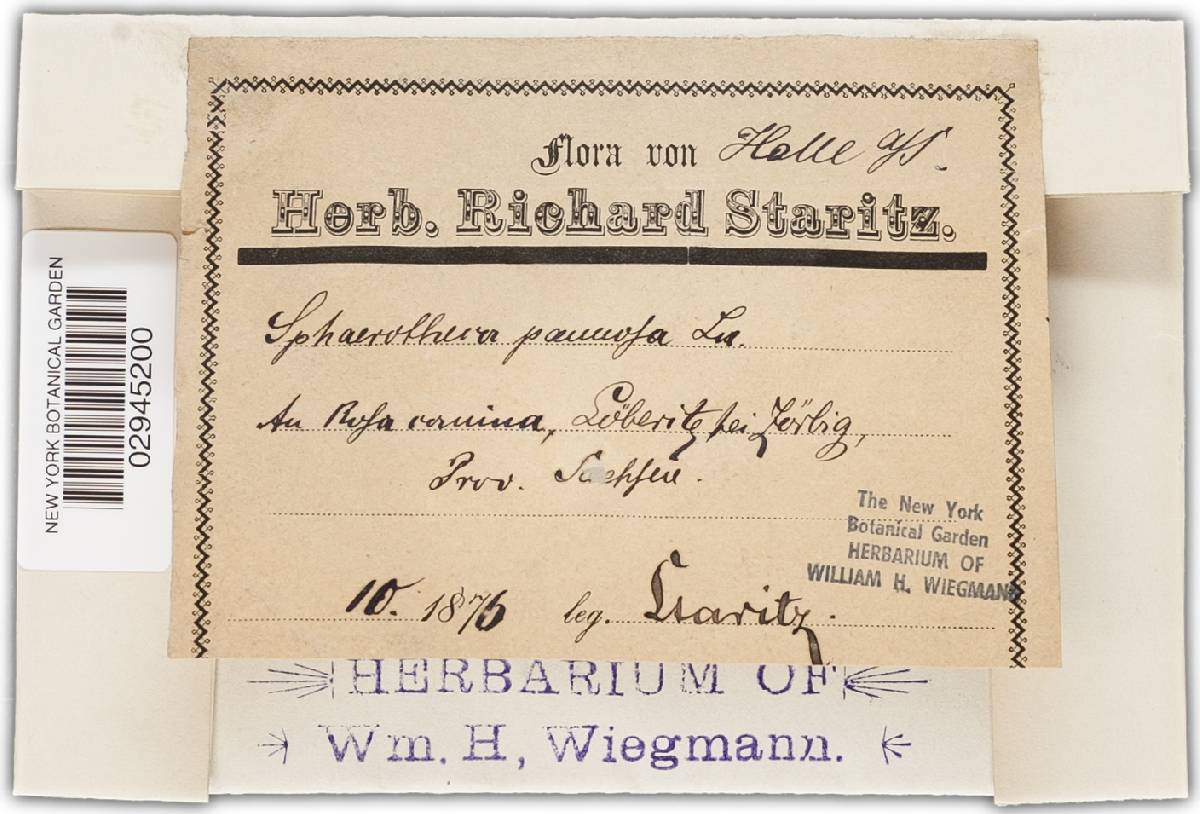 Flora von Halle a/S.
Herb. Richard Staritz.
Sphaerotheca pannosa Lev.
An Rosa canina, Löberitz bei Zörbig,
Prov. Sachsen.
The New York
Botanical Garden
HERBARIUM OF
WILLIAM H. WIEGMANN
10. 1876 leg. Staritz.
HERBARIUM OF
Wm. H. Wiegmann.
NEW YORK BOTANICAL GARDEN
02945200